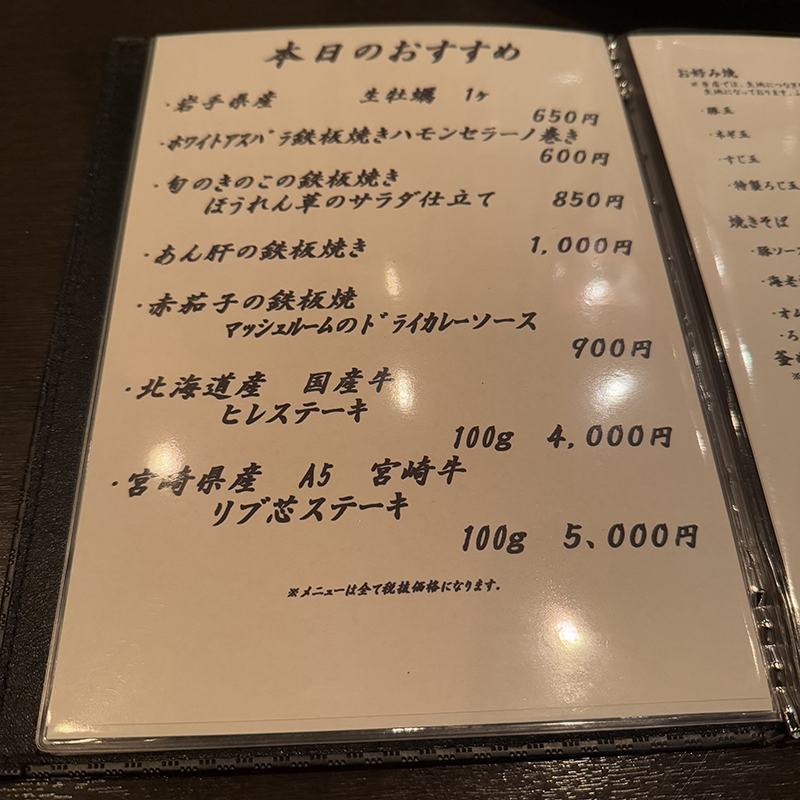 本日のおすすめ
・岩手県産 生牡蠣 1ヶ
650円
・ホワイトアスパラ鉄板焼きハモンセラーノ巻き
600円
・旬のきのこの鉄板焼き
ほうれん草のサラダ仕立て 850円
・あん肝の鉄板焼き 1,000円
・赤茄子の鉄板焼
マッシュルームのドライカレーソース
900円
・北海道産 国産牛
ヒレステーキ
100g 4,000円
・宮崎県産 A5 宮崎牛
リブ芯ステーキ
100g 5、000円
※メニューは全て税抜価格になります.
お好み焼
※当店では、生地につなぎ
生地になっております。
・豚玉
・ネギ玉
・すじ玉
・特製ろじ玉
焼きそば
・豚ソース
・海老
・オム
・ろ